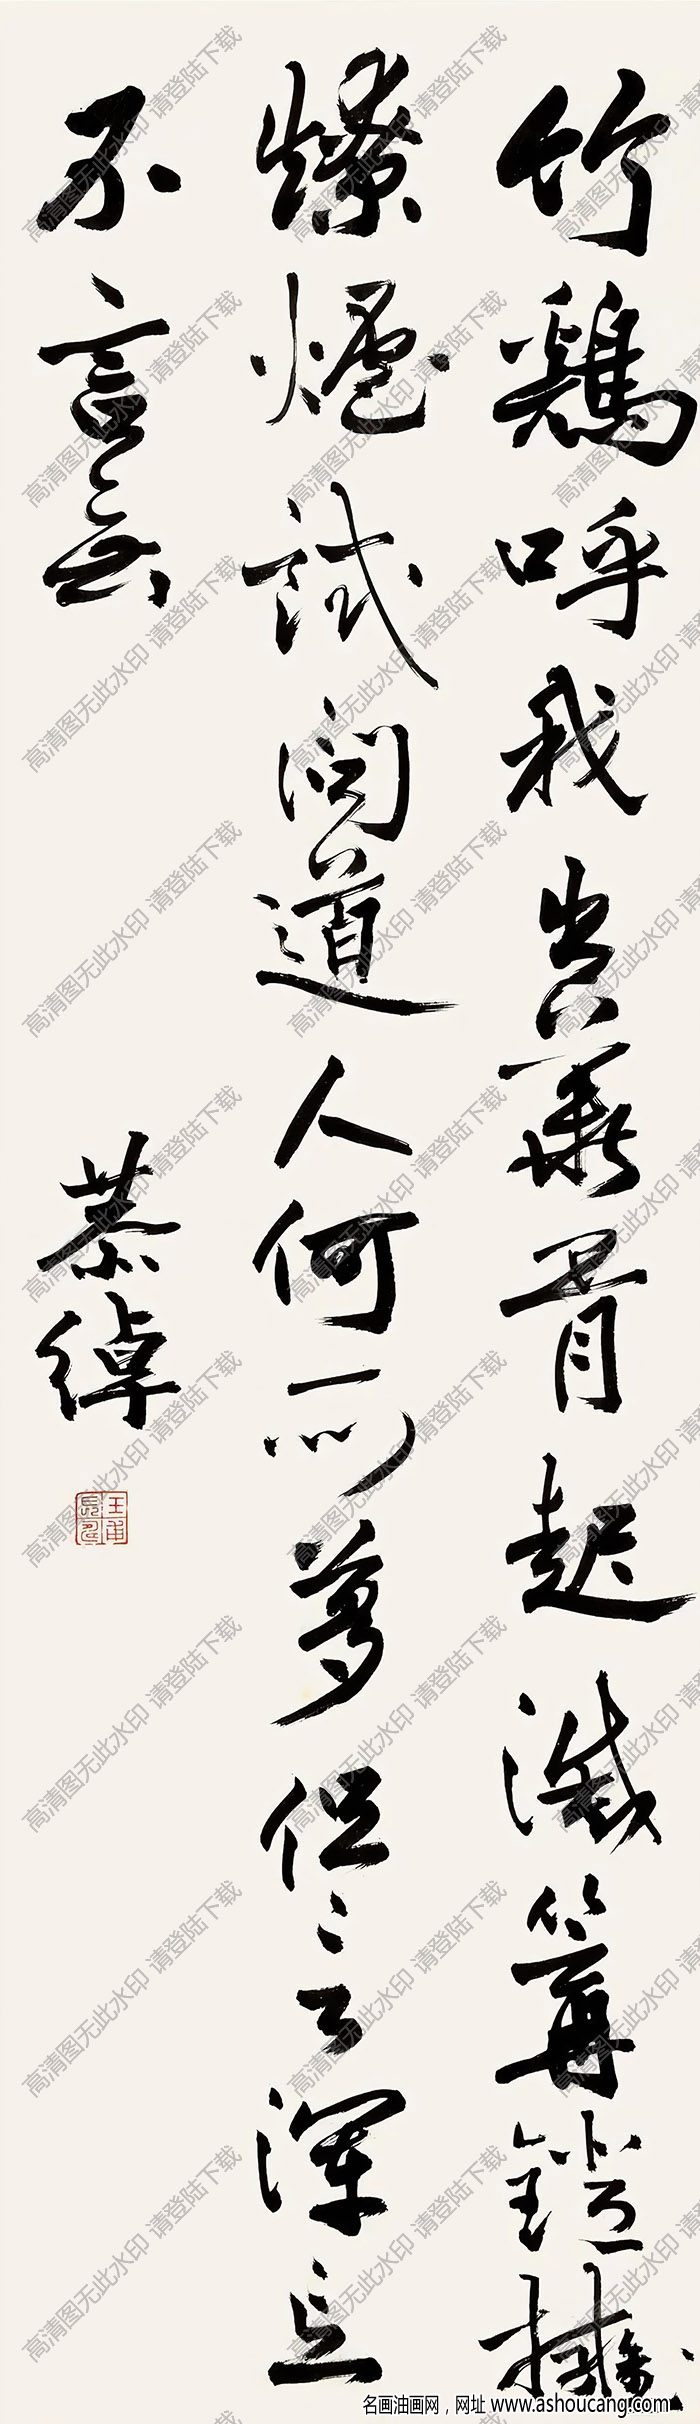 竹鷄呼我出華胥起滅篝鐙擁
燎爐試問道人何所夢但言渾忘
不言無
恭綽
高清图无此水印 请登陆下载
名画油画网，网址 www.ashoucang.com